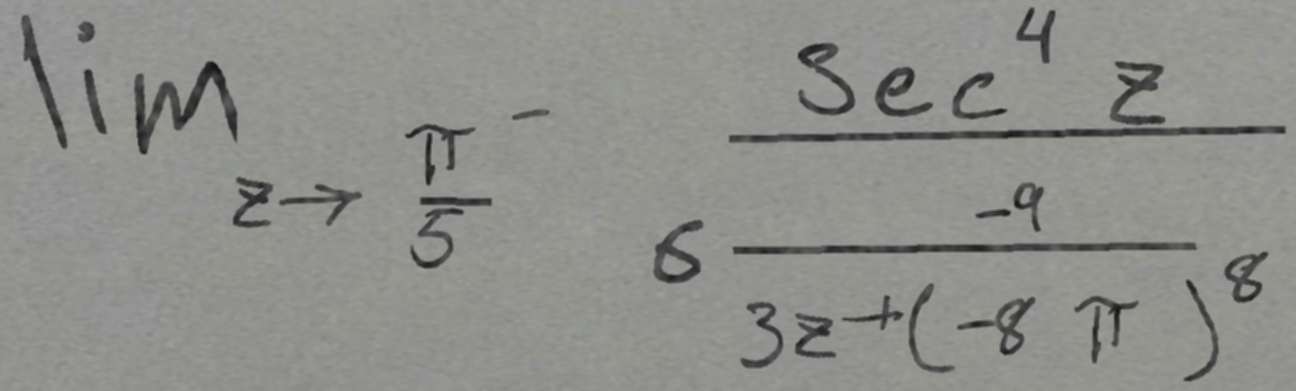 \lim_{z \to \frac{\pi}{5}^-} \frac{\sec^4 z}{6 \frac{-9}{3z + (-8\pi)^8}}